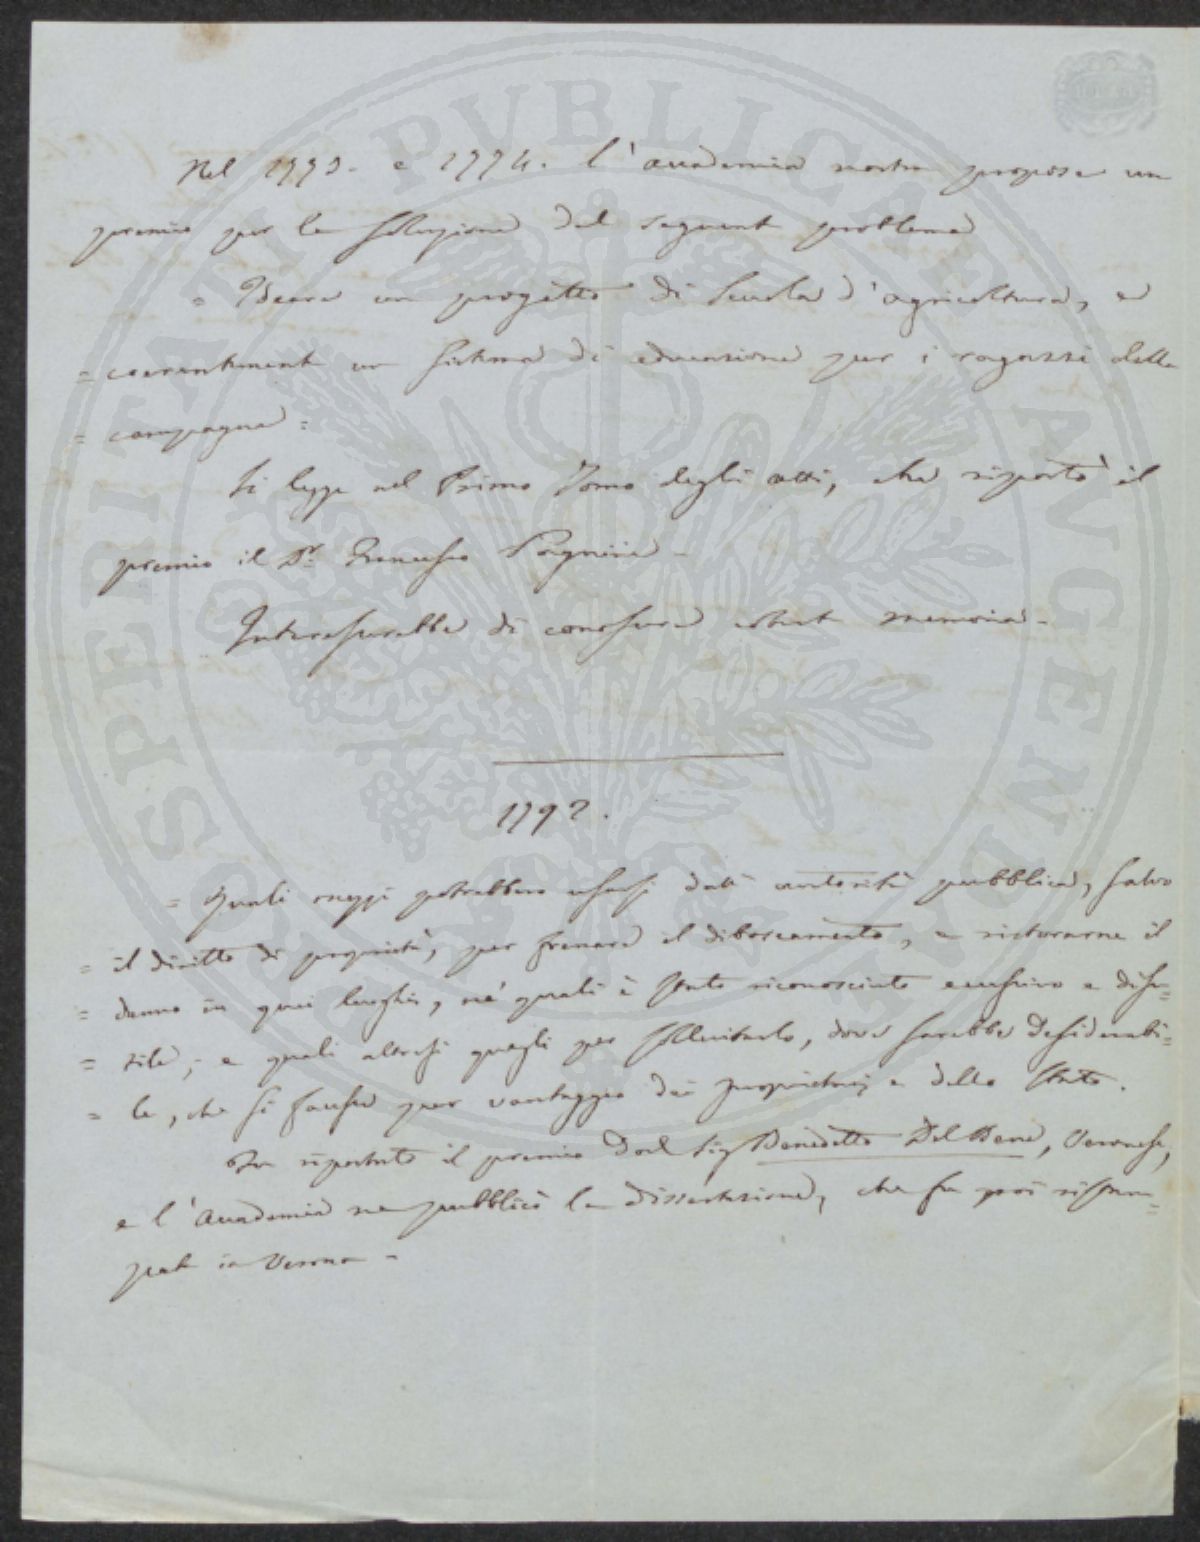 Nel 1773. e 1774. l'accademia nostra propose un
premio per la soluzione del seguente problema
= Ideare un progetto di scuola d'agricoltura, e
= coerentemente un sistema di educazione per i ragazzi della
= campagna =
Si legge nel Primo Tomo degli atti, che riportò il
premio il Dr. Francesco Pagnini -
Interesserebbe di conoscere cotest memoria -
1792.
= Quali mezzi potrebbero usarsi dall' autorità pubblica, salvo
= il diritto di proprietà, per frenare il diboscamento, e ristorarne il
= danno in quei luoghi, ne' quali è stato riconosciuto eccessivo e disu=
= tile; e quali altresì quegli per sollecitarlo, dove sarebbe desiderabi=
= le, che si facesse per vantaggio dei proprietarj e dello Stato.
Fu riportato il premio dal Sig Benedetto Del Bene, Veronese,
e l'Accademia ne pubblicò la dissertazione, che fu poi ristam=
pata in Verona -
SPERITATI PUBLICAE AUGENDAE